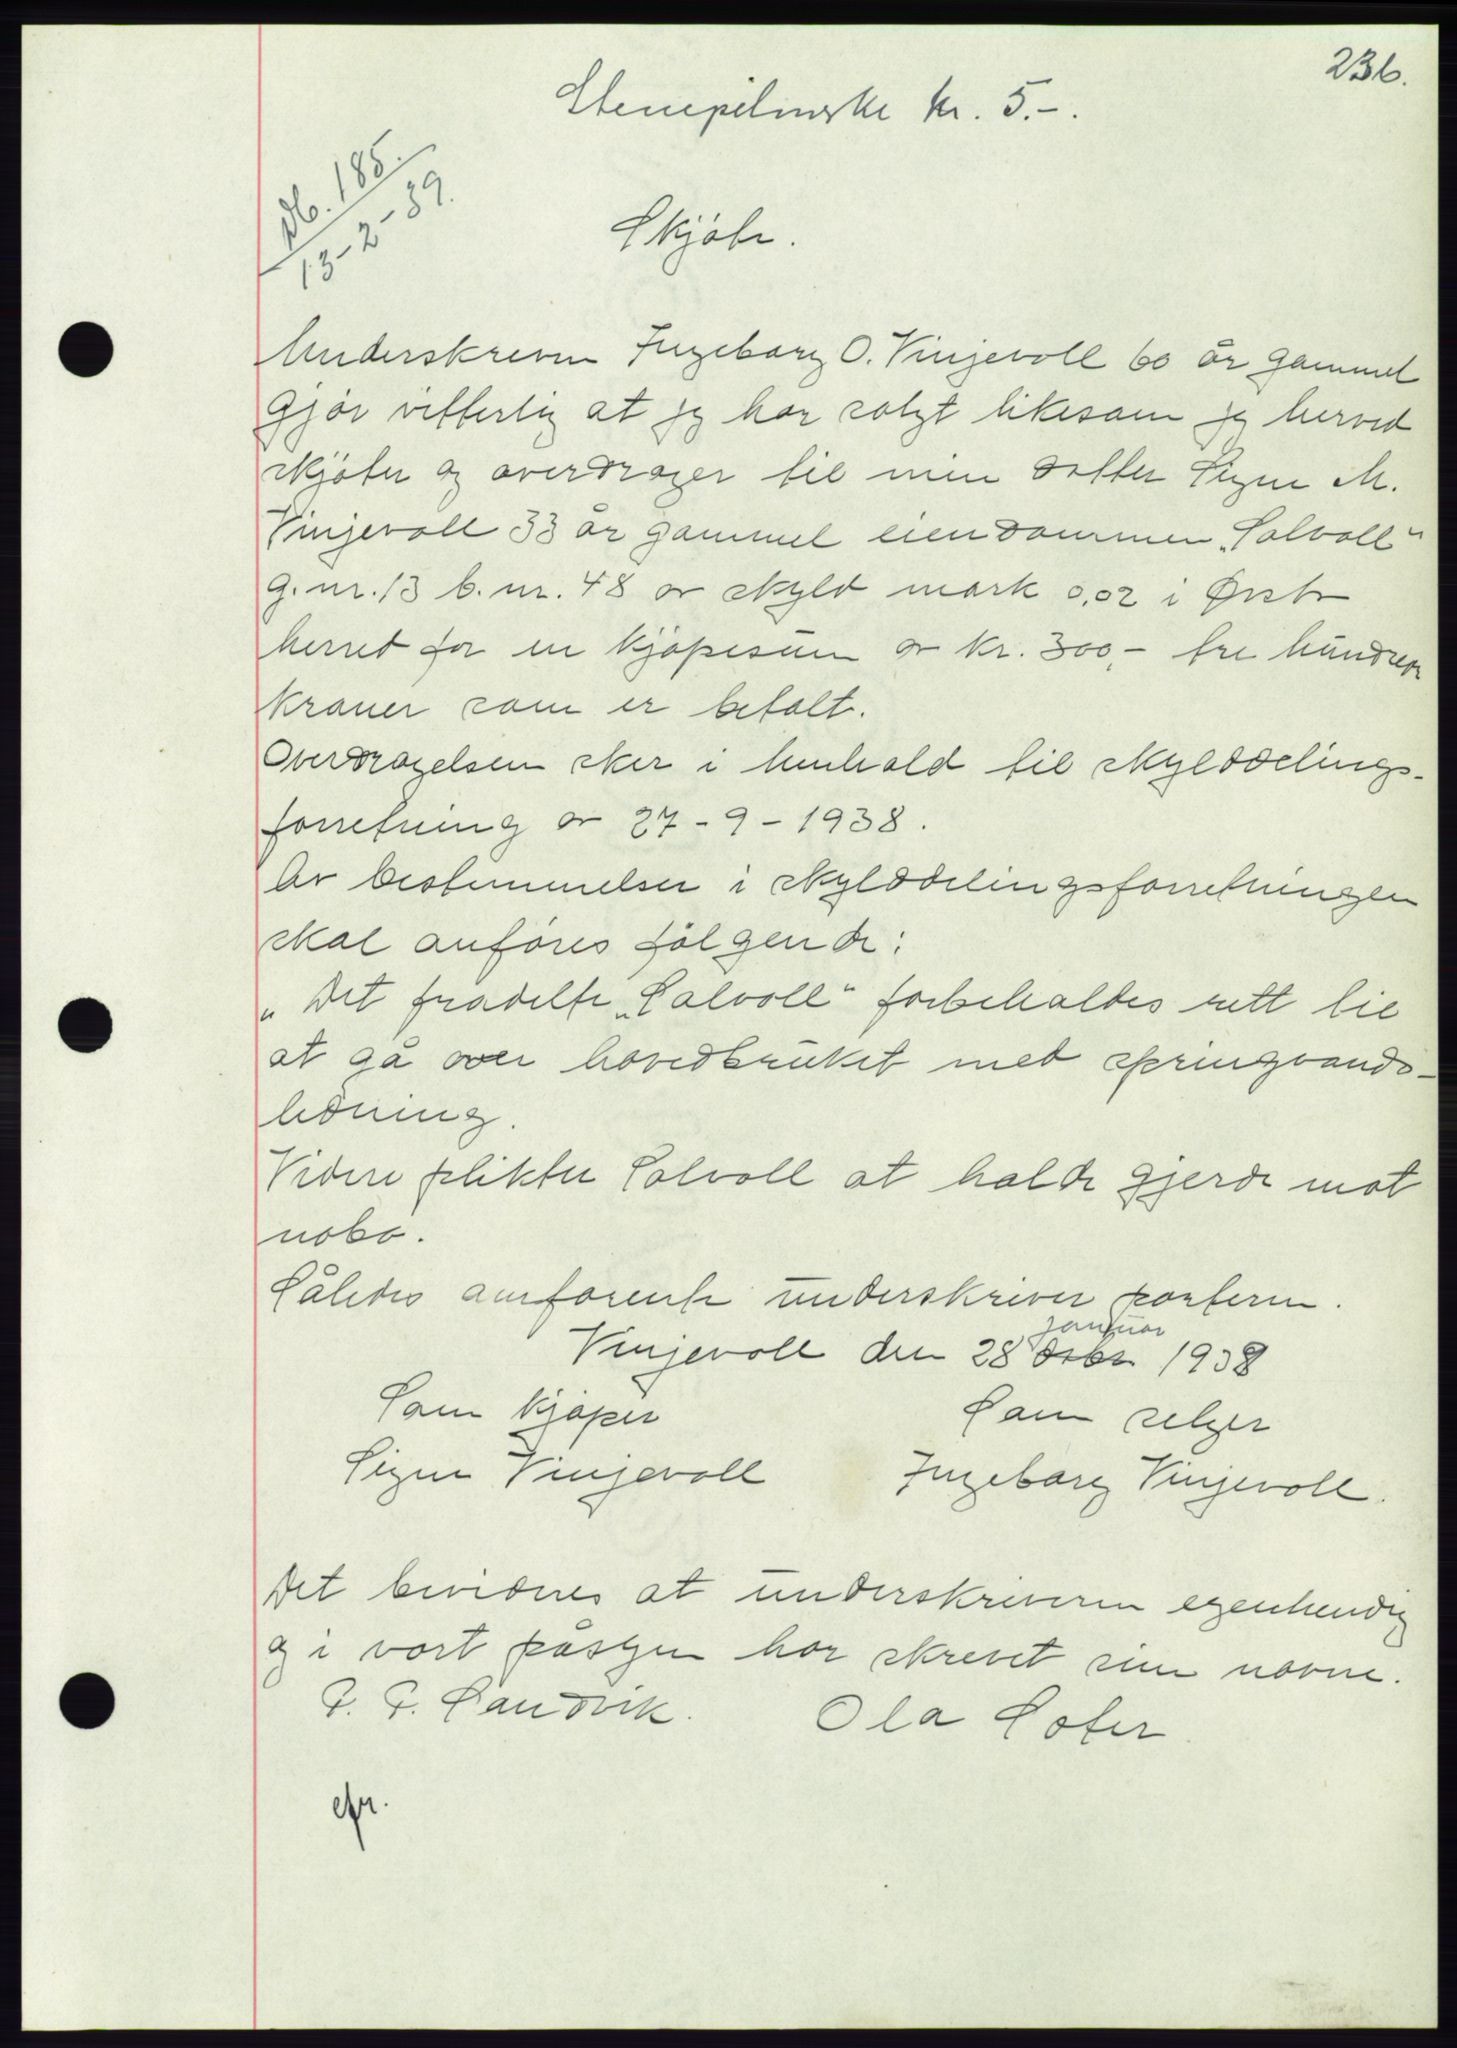 236.
Stempelmerke kr. 5.-.
Db. 185.
13-2-39.
Skjøte.
Underskreven Ingeborg O. Vinjevoll 60 år gammel
gjør vitterlig at jeg har solgt likesom jeg herved
skjøter og overdrager til min datter Signe M.
Vinjevoll 33 år gammel eiendommen „Solvoll“
g.nr. 13 b.nr. 48 av skyld mark 0,02 i Ørsta
herred for en kjøpesum av kr. 300,- tre hundrede
kroner som er betalt.
Overdragelsen sker i henhold til skylddelings-
forretning av 27-9-1938.
Av bestemmelser i skylddelingsforretningen
skal anføres følgende:
„Det fradelte „Solvoll“ forbeholdes rett til
at gå over hovedbruket med springvands-
ledning.
Videre plikter Solvoll at holde gjerde mot
nabo.
Således omforente underskriver parterne.
januar
Vinjevoll den 28 1939
Som kjøper
Som selger
Signe Vinjevoll
Ingeborg Vinjevoll.
Det bevidnes at underskriverne egenhendig
og i vort påsyn har skrevet sine navne.
P. P. Sandvik.
Ola Sæter
efr.